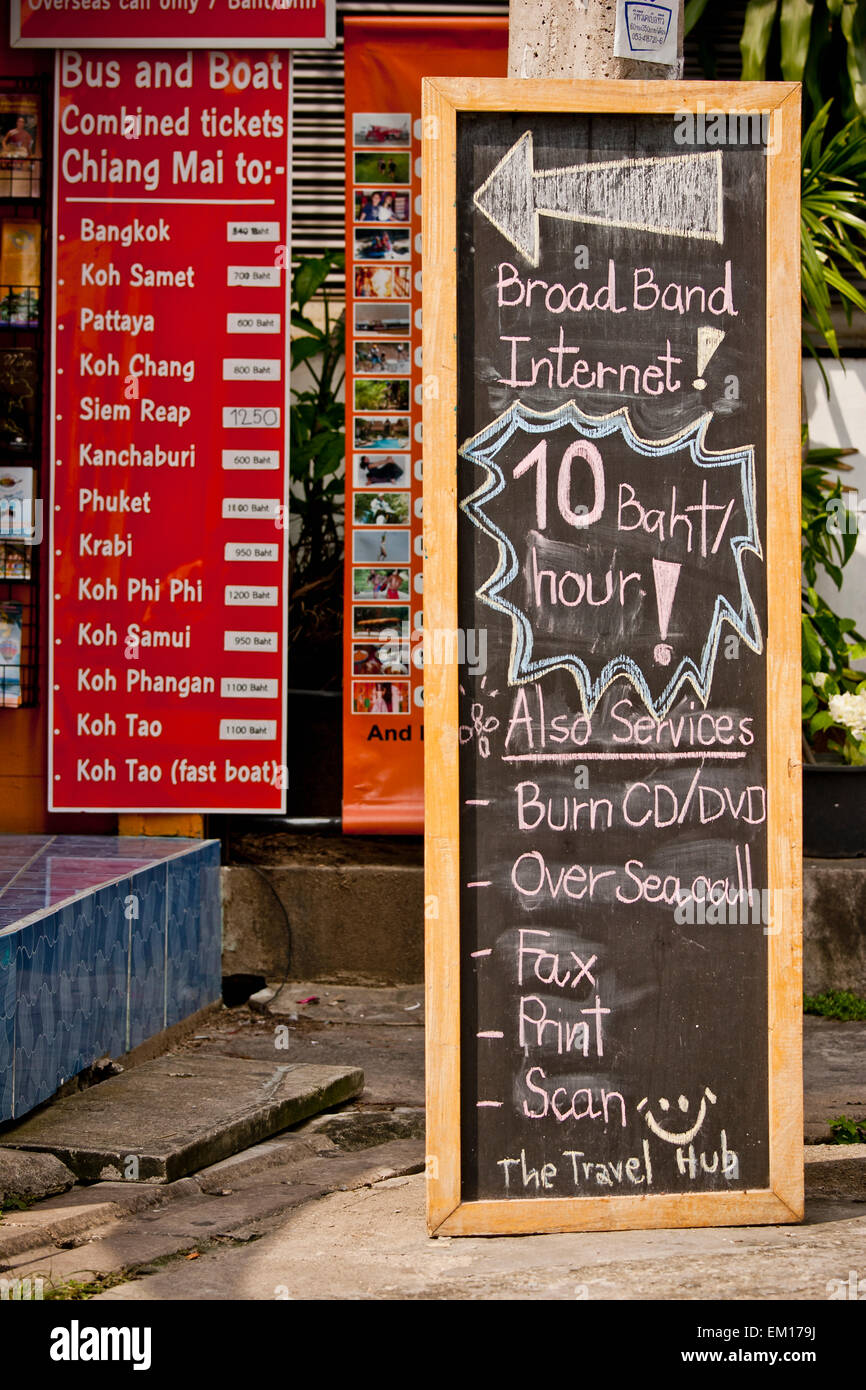 Overseas call only 7 Baht/min
Bus and Boat
Combined tickets
Chiang Mai to:-
. Bangkok 840 Baht
. Koh Samet 700 Baht
. Pattaya 600 Baht
. Koh Chang 800 Baht
. Siem Reap 1250
. Kanchaburi 600 Baht
. Phuket 1100 Baht
. Krabi 950 Baht
. Koh Phi Phi 1200 Baht
. Koh Samui 950 Baht
. Koh Phangan 1100 Baht
. Koh Tao 1100 Baht
. Koh Tao (fast boat)
And
Broad Band
Internet !
10 Baht/
hour. !
Also Services
- Burn CD/DVD
- Over Sea call
- Fax
- Print
- Scan
The Travel Hub
alamy
Image ID: EM179J
www.alamy.com